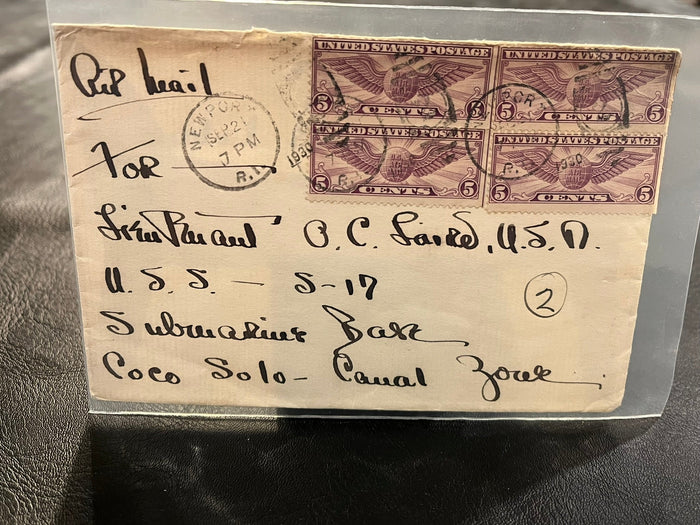 Air Mail
UNITED STATES POSTAGE
UNITED STATES POSTAGE
5 CENTS 5
5 CENTS 5
UNITED STATES POSTAGE
UNITED STATES POSTAGE
5 CENTS 5
5 CENTS 5
NEWPORT
SEP 21
7 PM
1930
R.I.
PORT
1930
R.I.
For
Lieutenant O. C. Laird, U.S.N.
U.S.S. — S-17
2
Submarine Base
Coco Solo - Canal Zone.